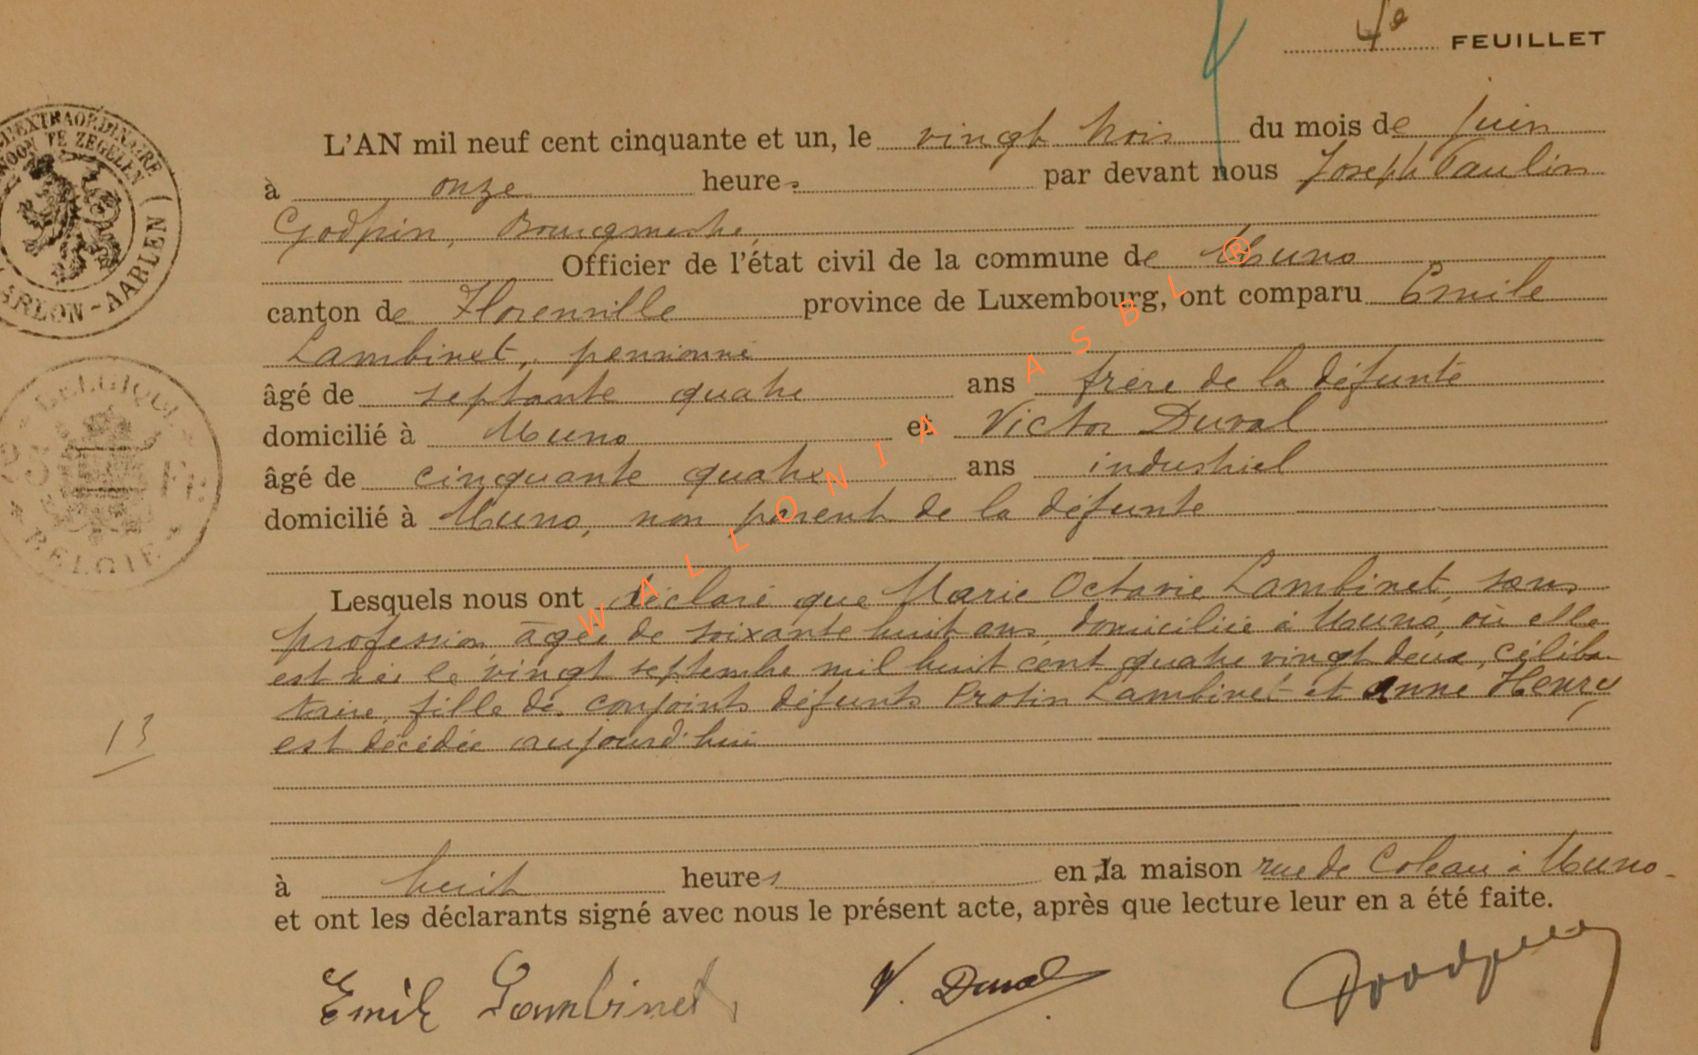 4e FEUILLET
L'AN mil neuf cent cinquante et un, le vingt trois du mois de juin
à onze heures par devant nous Joseph Paulin
Godfrin, Bourgmestre,
Officier de l'état civil de la commune de Muno
canton de Florenville province de Luxembourg, ont comparu Emile
Lambinet, pensionné
âgé de septante quatre ans frère de la défunte
domicilié à Muno et Victor Duval
âgé de cinquante quatre ans industriel
domicilié à Muno, non parent de la défunte
Lesquels nous ont déclaré que Marie Octavie Lambinet, sans
profession, âgée de soixante huit ans, domiciliée à Muno, où elle
est née le vingt septembre mil huit cent quatre vingt deux, céliba-
taire, fille des conjoints défunts Protin Lambinet et Anne Henry
est décédée aujourd'hui
13
à huit heures en la maison rue de à Muno.
et ont les déclarants signé avec nous le présent acte, après que lecture leur en a été faite.
Emile Lambinet V. Duval
L'EXTRAORDINAIRE
TE ZEGELEN
ARLON - AARLEN
BELGIQUE
FR
BELGIË
WALLONIA ASBL ®